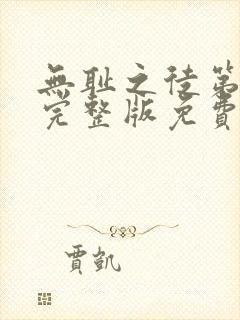 無耻之徒第
完整版免費
賈凱